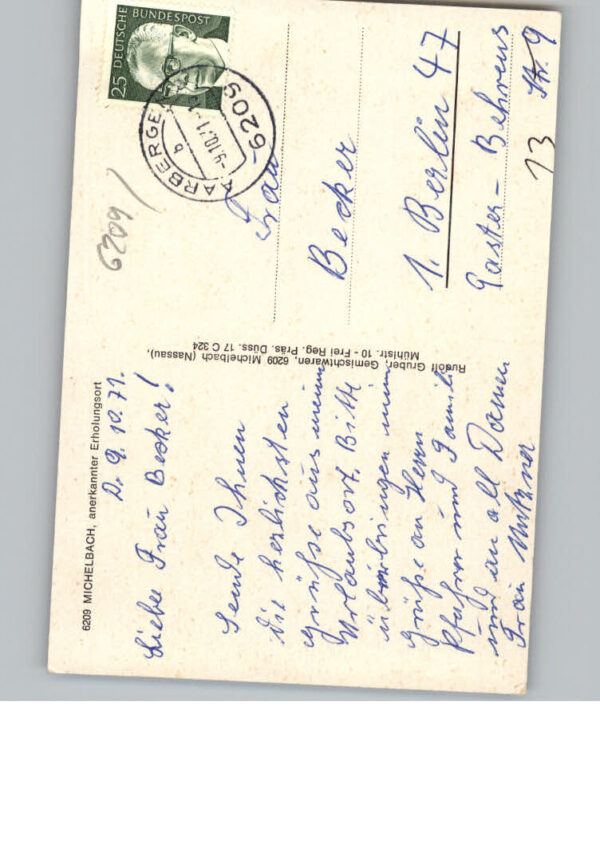 6209 MICHELBACH, anerkannter Erholungsort
D. 9. 10. 71.
Liebe Frau Becker!
Sende Ihnen
die herlichsten
Grüße aus meinem
Urlaubsort. Bitte
überbringen meine
Grüße an Herrn
Pfarrer und Famili
und an all Damen
Frau
Rudolf Gruber, Gemischtwaren, 6209 Michelbach (Nassau),
Mühlstr. 10 - Frei Reg. Präs. Düss. 17 C 324
25 DEUTSCHE BUNDESPOST
AARBERGEN
b
-9.10.71-
6209
6209
Frau
Becker
1. Berlin 47
Paster - Behrens
Str. 9
13